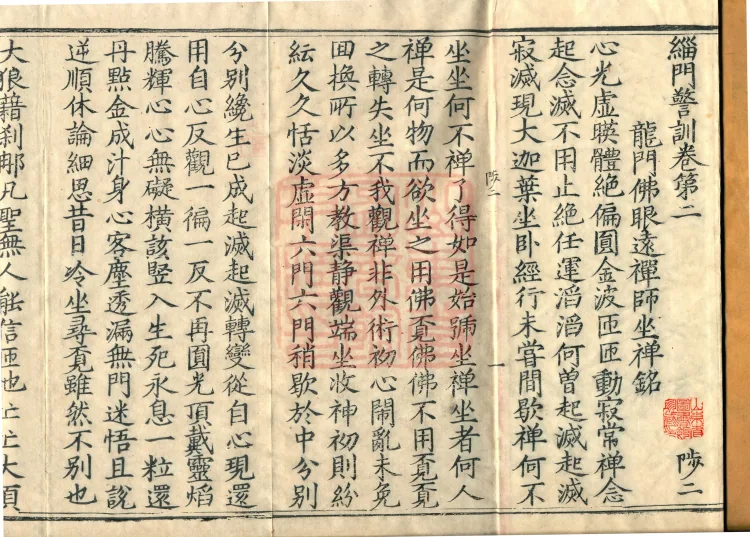 緇門警訓卷第二
陟二
龍門佛眼遠禪師坐禪銘
心光虛暎體絕偏圓金波匝匝動寂常禪念
起念滅不用止絕任運滔滔何曾起滅起滅
寂滅現大迦葉坐卧經行未甞間歇禪何不
坐坐何不禪了得如是始號坐禪坐者何人
禅是何物而欲坐之用佛覔佛佛不用覔覔
之轉失坐不我觀禪非外術初心鬧亂未免
回換所以多方教渠静觀端坐收神初則紛
紜久久恬淡虛閑六門六門稍歇於中分別
陟二
一
分别纔生已成起滅起滅轉變從自心現還
用自心反觀一徧一反不再圓光頂戴靈焰
騰輝心心無礙橫該竪入生死永息一粒還
丹點金成汁身心客塵透漏無門迷悟且說
逆順休論細思昔日冷坐尋覔雖然不別也
大狼藉刹那凡聖無人能信匝地忙忙大須